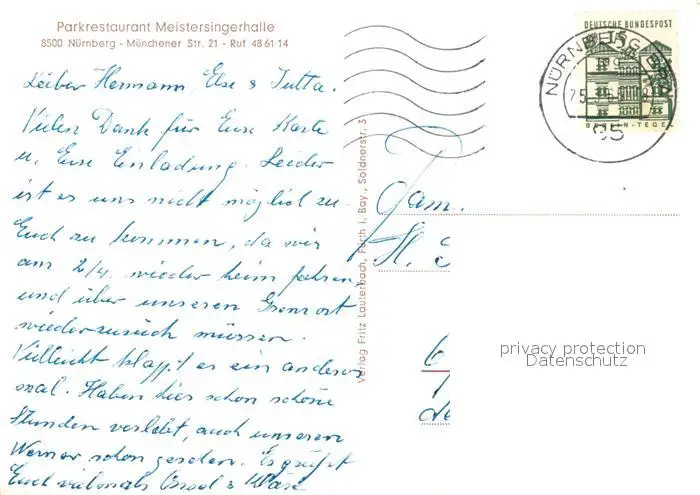 Parkrestaurant Meistersingerhalle
8500 Nürnberg - Münchener Str. 21 - Ruf 48 61 14
Lieber Hermann, Else & Jutta.
Vielen Dank für Eure Karte
u. Eure Einladung. Leider
ist es uns nicht möglich zu
Euch zu kommen, da wir
am 2/4. wieder heim fahren
und über unseren Grenzort
wieder zurück müssen.
Vielleicht klappt es ein anderes
mal. Haben hier schon schöne
Stunden verlebt, auch unseren
Werner schon gesehen. Es grüßt
Euch vielmals
Verlag Fritz Lauterbach, Fürth i. Bay., Soldnerstr. 3
DEUTSCHE BUNDESPOST
15
BERLIN-TEGEL
NÜRNBERG
85
Fam.
H.
6
privacy protection
Datenschutz